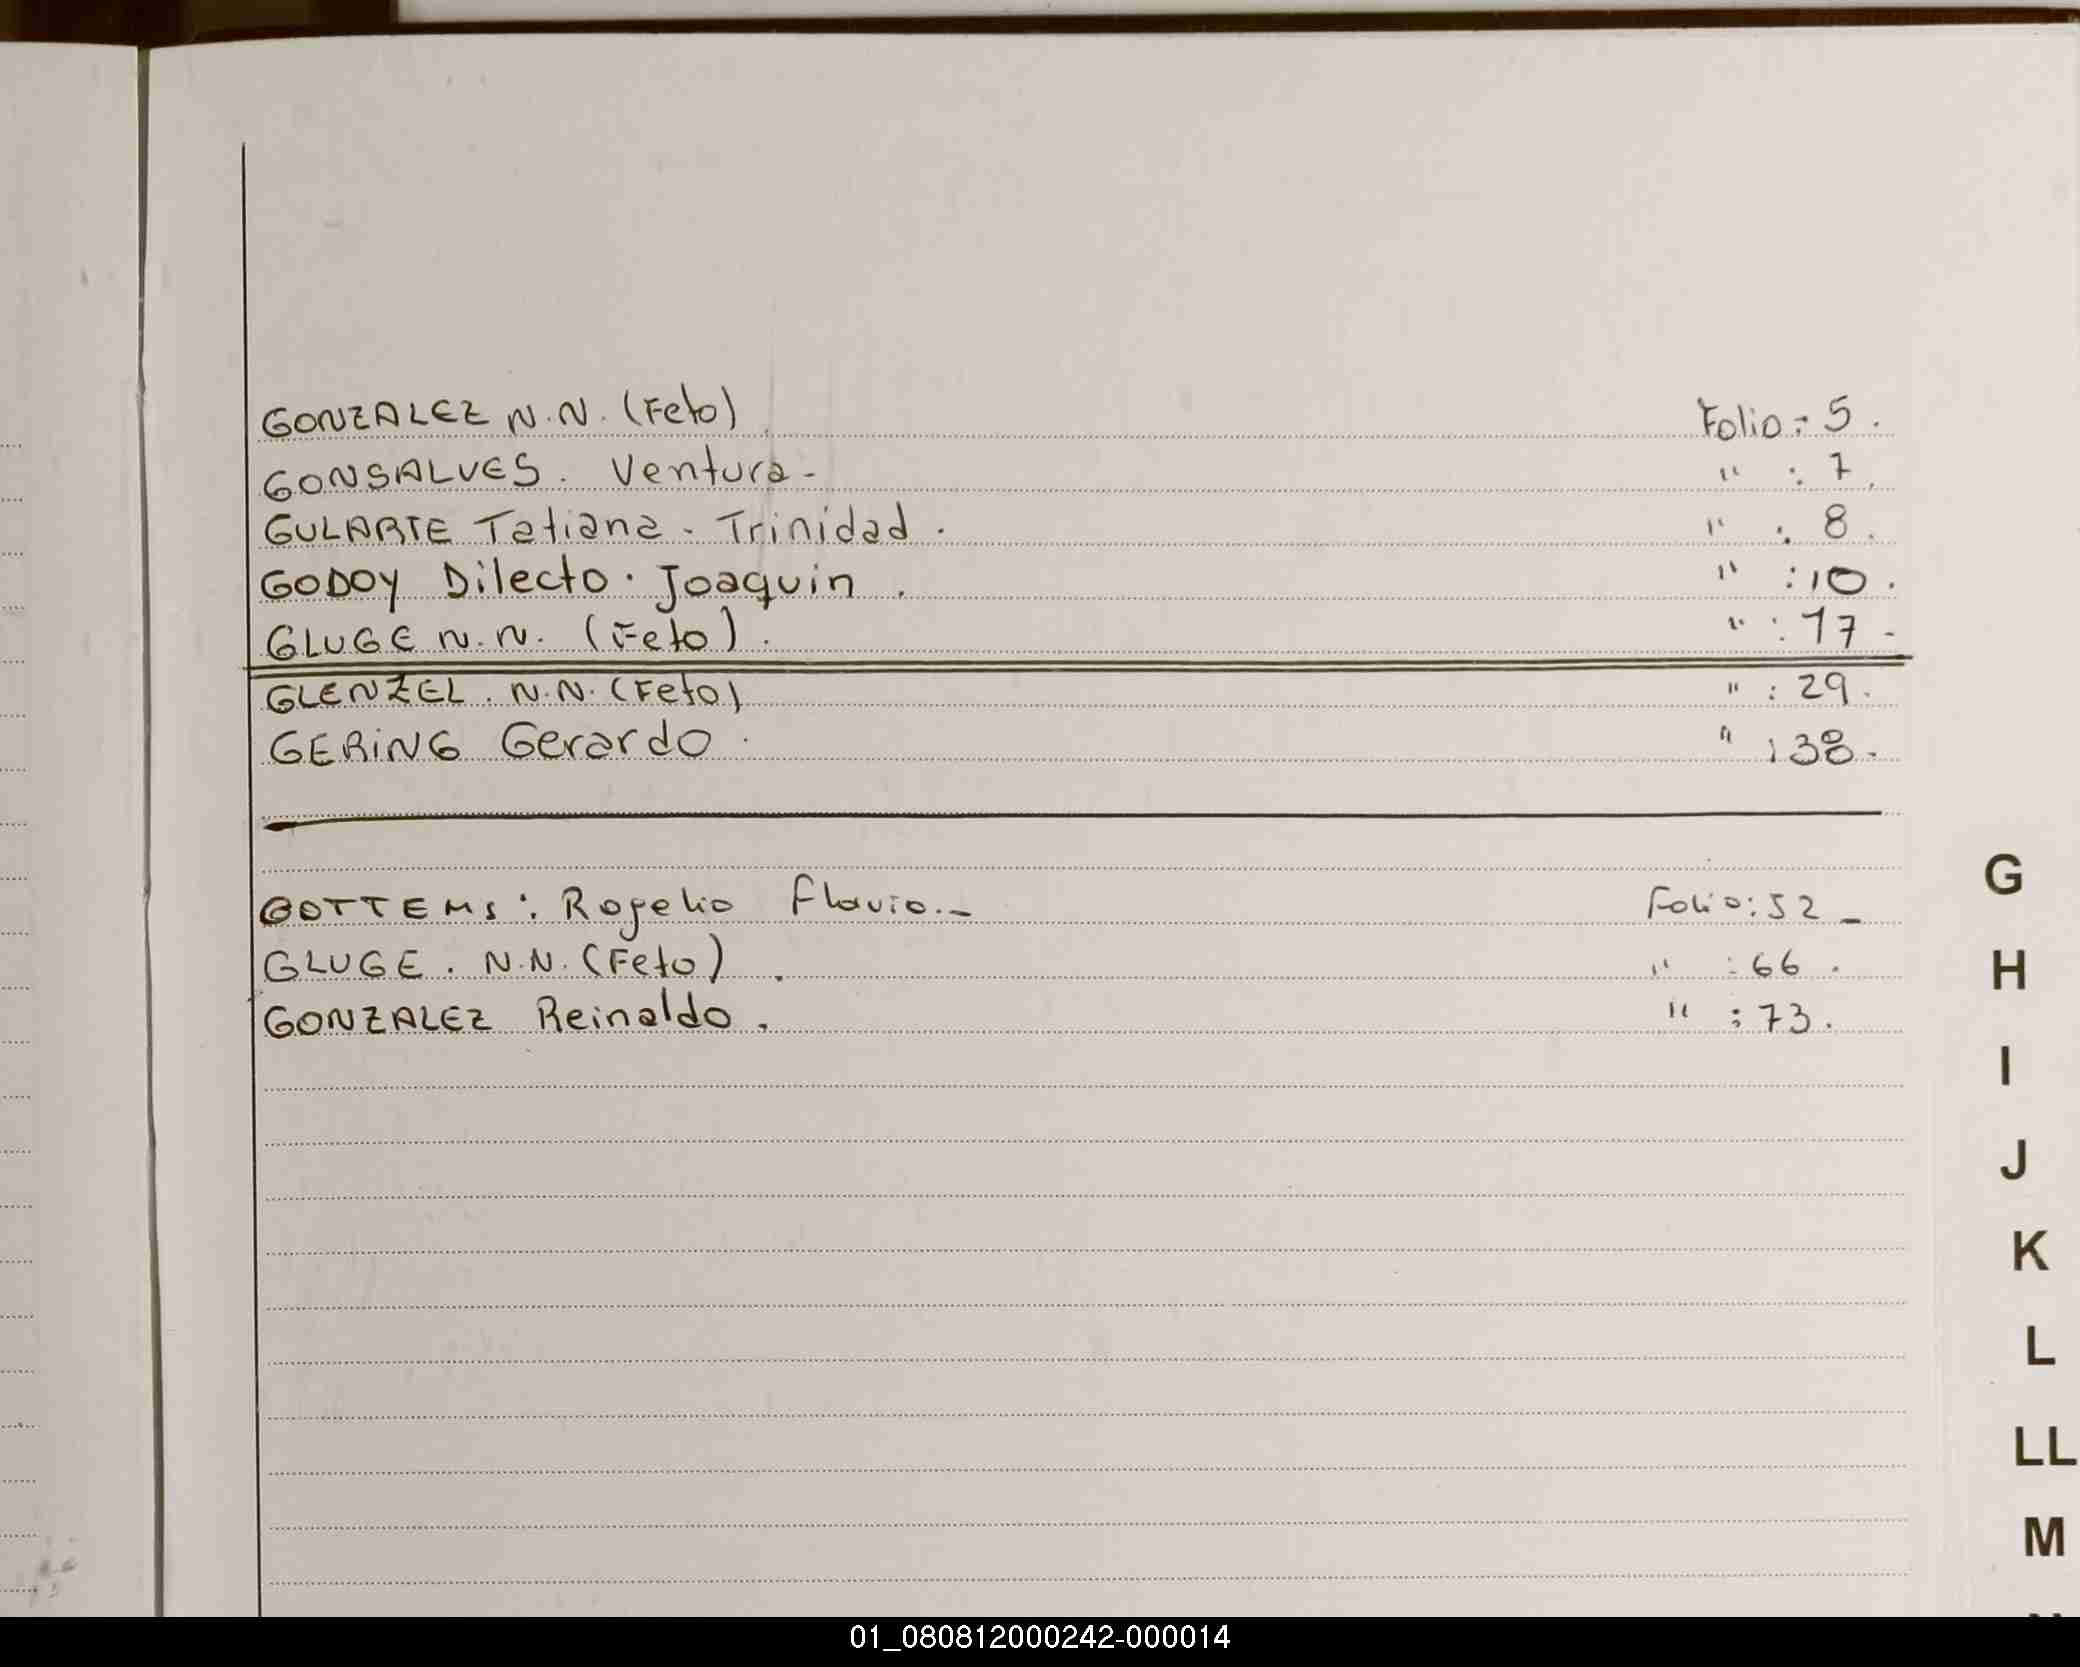 GONZALEZ N.N. (Feto) Folio: 5.
GONSALVES. Ventura- " : 7.
GULARTE Tatiana. Trinidad. " : 8.
GODOY Dilecto. Joaquin. " : 10.
GLUGE N.N. (Feto). " : 17-
GLENZEL. N.N. (Feto) " : 29.
GERiNG Gerardo. " : 38.
GOTTEMS: Rogelio Flavio.- Folio: 52-
GLUGE. N.N. (Feto). " : 66.
GONZALEZ Reinaldo. " : 73.
G
H
I
J
K
L
LL
M
01_080812000242-000014